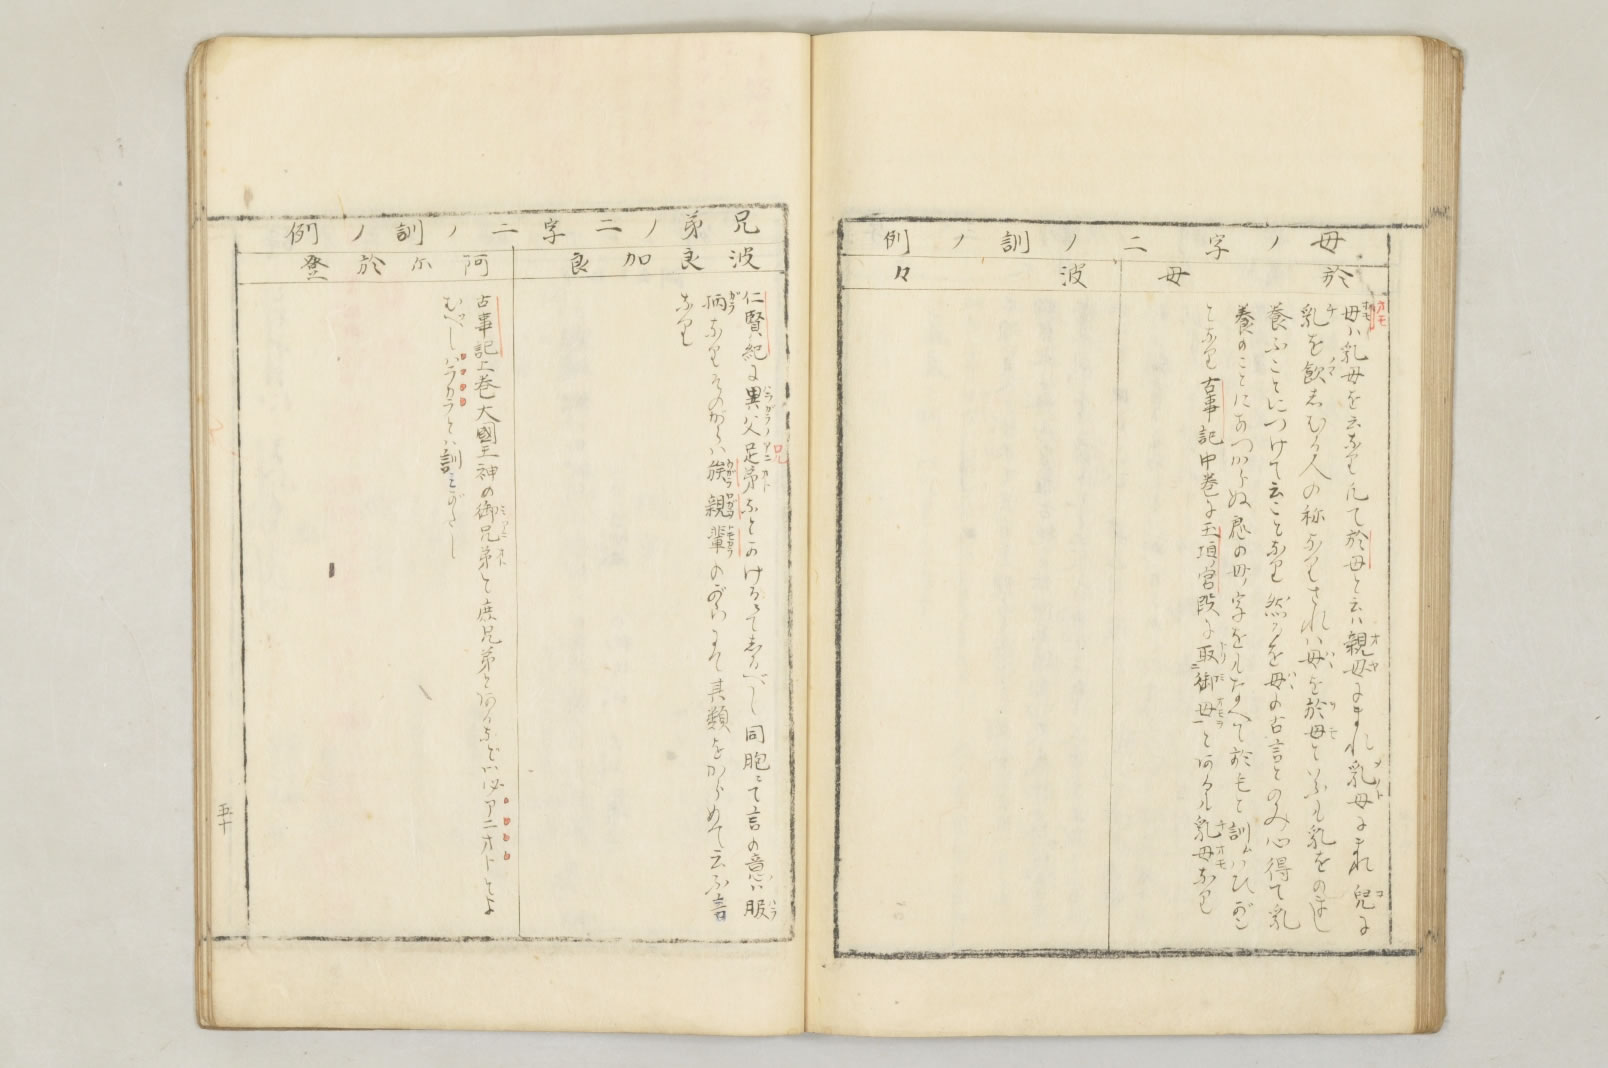 母ノ字二ノ訓ノ例
於母
波々
母ハ乳母を云なり凡て於母と云ハ親母にまれ乳母にまれ兒に
乳を飲しむる人の称なりされハ母を於母といふも乳をのまし
養ふことにつけて云ことなり然るを母の古言とのみ心得て乳
養のことにあつからぬ所の母ノ字をもなへて於毛と訓ムハひがこ
となり古事記中巻に玉垣ノ宮ノ段に取御母とあるも乳母なり
兄弟ノ二字二ノ訓ノ例
波良加良
阿尓於登
仁賢紀に異父兄弟なとかけるにてしるべし同胞にて言の意ハ腹
柄なりそのがらハ族親輩のがらにて其類をからめて云ふ言
なり
古事記上巻大國主神の御兄弟と庶兄弟とあるなどハ必アニオトとよ
むべしハラカラとハ訓ミがたし
五十